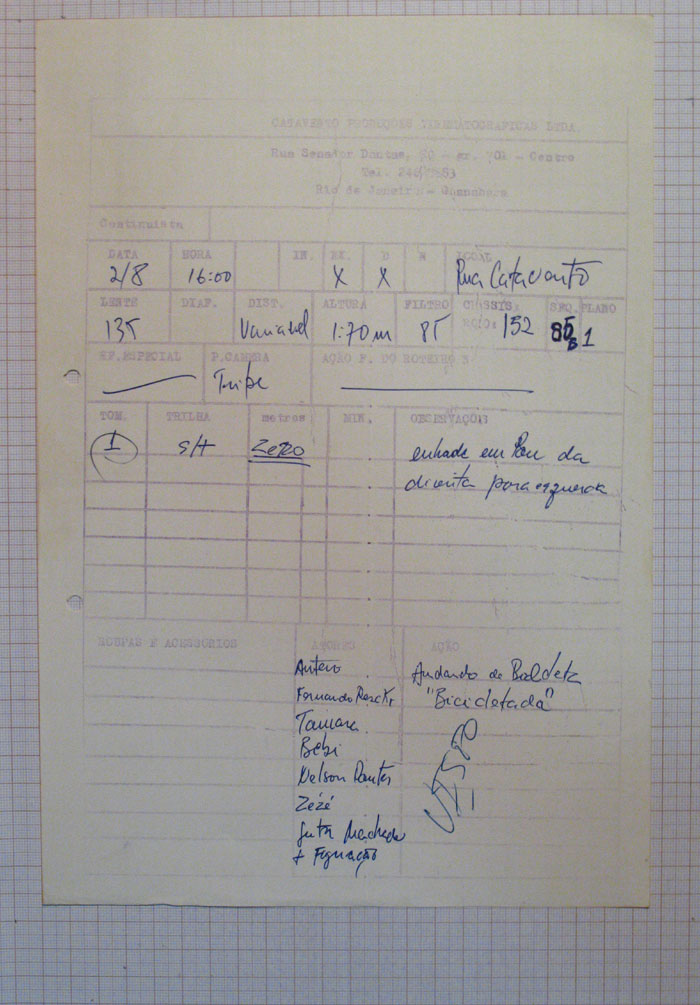 CATAVENTO PRODUÇÕES CINEMATOGRAFICAS LTDA.
Rua Senador Dantas, 80 - gr. - Centro
Tel.
Rio de Janeiro - Guanabara
Continuista
DATA HORA IN. EX. D N LOCAL
2/8 16:00 X X Rua Catavento
LENTE DIAF. DIST. ALTURA FILTRO CHASSIS: SEQ. PLANO
135 Variavel 1:70 m 85 ROLO: 152 85 B 1
EF.ESPECIAL P.CAMERA AÇÃO P. DO ROTEIRO
Tripe
TOM. TRILHA metros MIN. OBSERVAÇÕES
1 S/T ZERO
em Pan da
direita para esquerda
ROUPAS E ACESSORIOS ATORES AÇÃO
Antero Andando de
Fernando "Bicicletada"
Tamara
Bebi
Nelson Dantas
Zézé
Guta Machado
+ Figuração